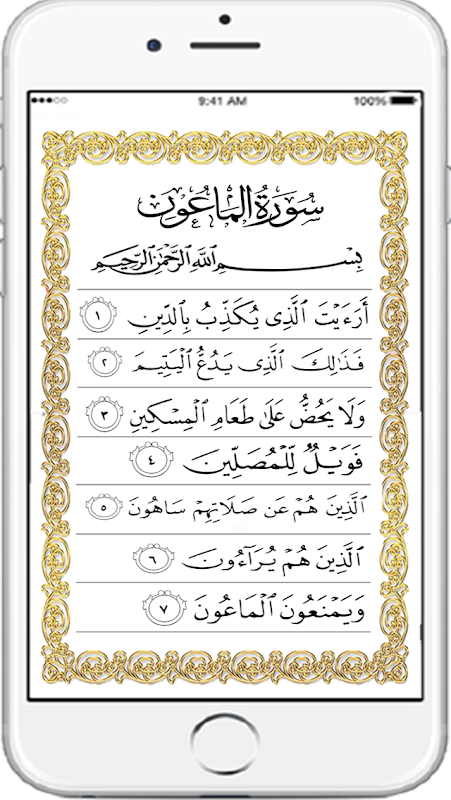 9:41 AM 100%
سُورَةُ الْمَاعُونَ
بِسْمِ ٱللَّهِ ٱلرَّحْمَٰنِ ٱلرَّحِيمِ
أَرَءَيْتَ ٱلَّذِى يُكَذِّبُ بِٱلدِّينِ ١
فَذَٰلِكَ ٱلَّذِى يَدُعُّ ٱلْيَتِيمَ ٢
وَلَا يَحُضُّ عَلَىٰ طَعَامِ ٱلْمِسْكِينِ ٣
فَوَيْلٌ لِّلْمُصَلِّينَ ٤
ٱلَّذِينَ هُمْ عَن صَلَاتِهِمْ سَاهُونَ ٥
ٱلَّذِينَ هُمْ يُرَآءُونَ ٦
وَيَمْنَعُونَ ٱلْمَاعُونَ ٧